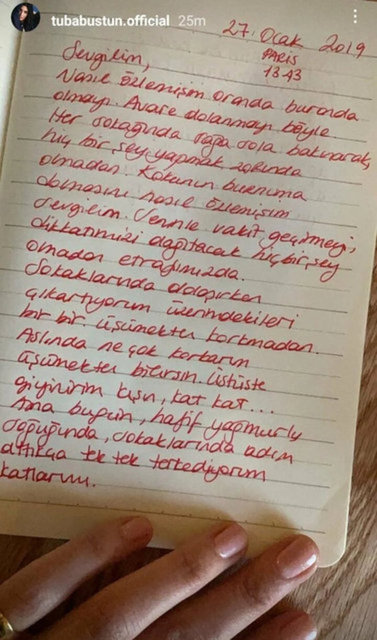 tubabustun.official 25m
27. Ocak 2019
PARIS
13.43
Sevgilim,
Nasıl özlemişim oranda buranda
olmayı. Avare dolanmayı böyle
Her sokağında sağa sola bakınarak,
hiç bir şey yapmak zorunda
olmadan. Kokunun burnuma
dolmasını nasıl özlemişim
sevgilim. Seninle vakit geçirmeyi,
dikkatimizi dağıtacak hiç bir şey
olmadan etrafımızda.
Sokaklarında dolaşırken
çıkartıyorum üzerimdekileri
bir bir. Üşümekten korkmadan.
Aslında ne çok korkarım
üşümekten bilirsin. Üstüste
giyinirim kışın, kat kat...
Ama bugün, hafif yağmurlu
soğuğunda, sokaklarında adım
attıkça tek tek terkediyorum
katlarımı.